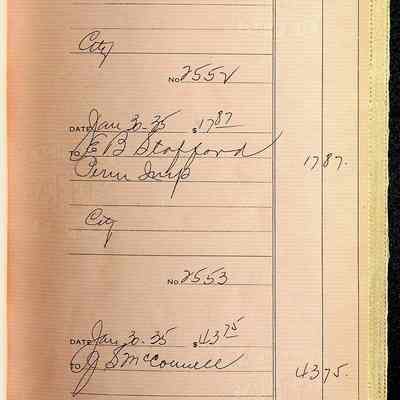 City
No. 2552
DATE Jan 30-35 $17 87
TO E B Stafford 17 87.
Perm Imp
City
No. 2553
DATE Jan 30-35 $43 75
TO J S McConnell 43 75.